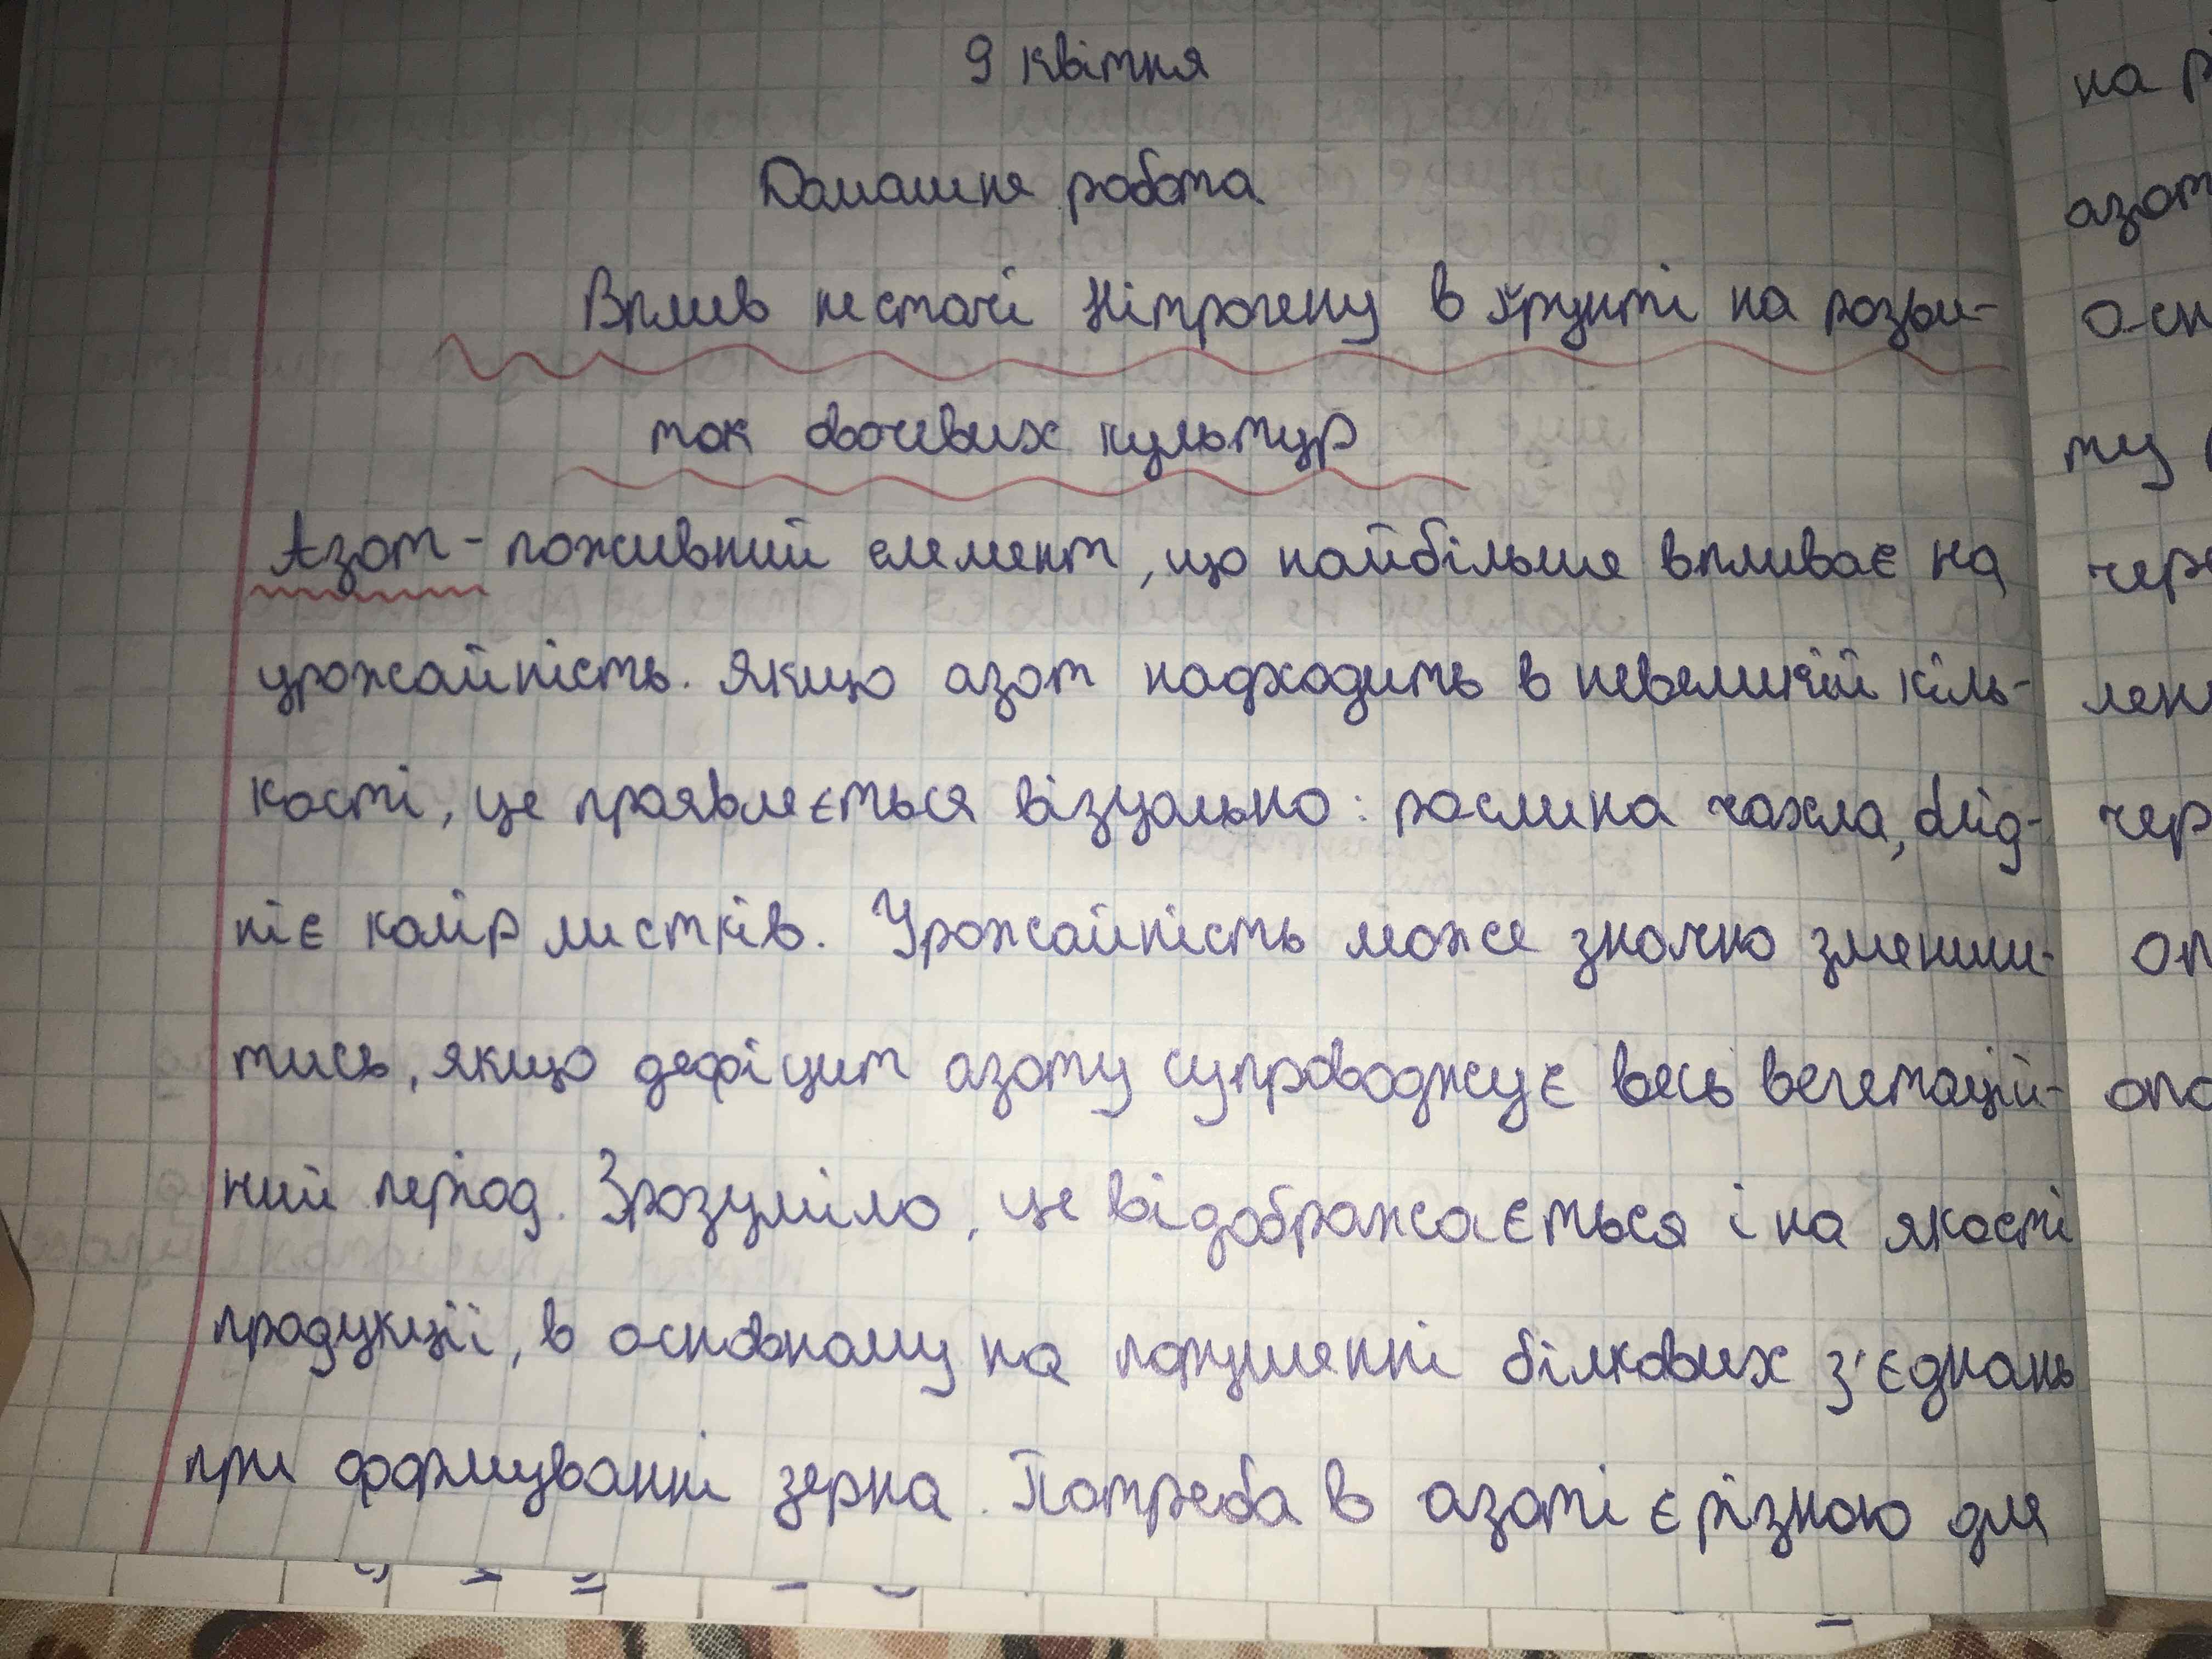 9 квітня
Домашня робота
Вплив нестачі Нітрогену в ґрунті на розви-
ток овочевих культур
Азот - поживний елемент, що найбільше впливає на
урожайність. Якщо азот надходить в невеликій кіль-
кості, це проявляється візуально: рослина чахла, блід-
ніє колір листків. Урожайність може значно зменши-
тись, якщо дефіцит азоту супроводжує весь вегетацій-
ний період. Зрозуміло, це відображається і на якості
продукції, в основному на порушенні білкових з'єднань
при формуванні зерна. Потреба в азоті є різною для
на р
азот
осн
ту
чере
лен
чер
оп
опа